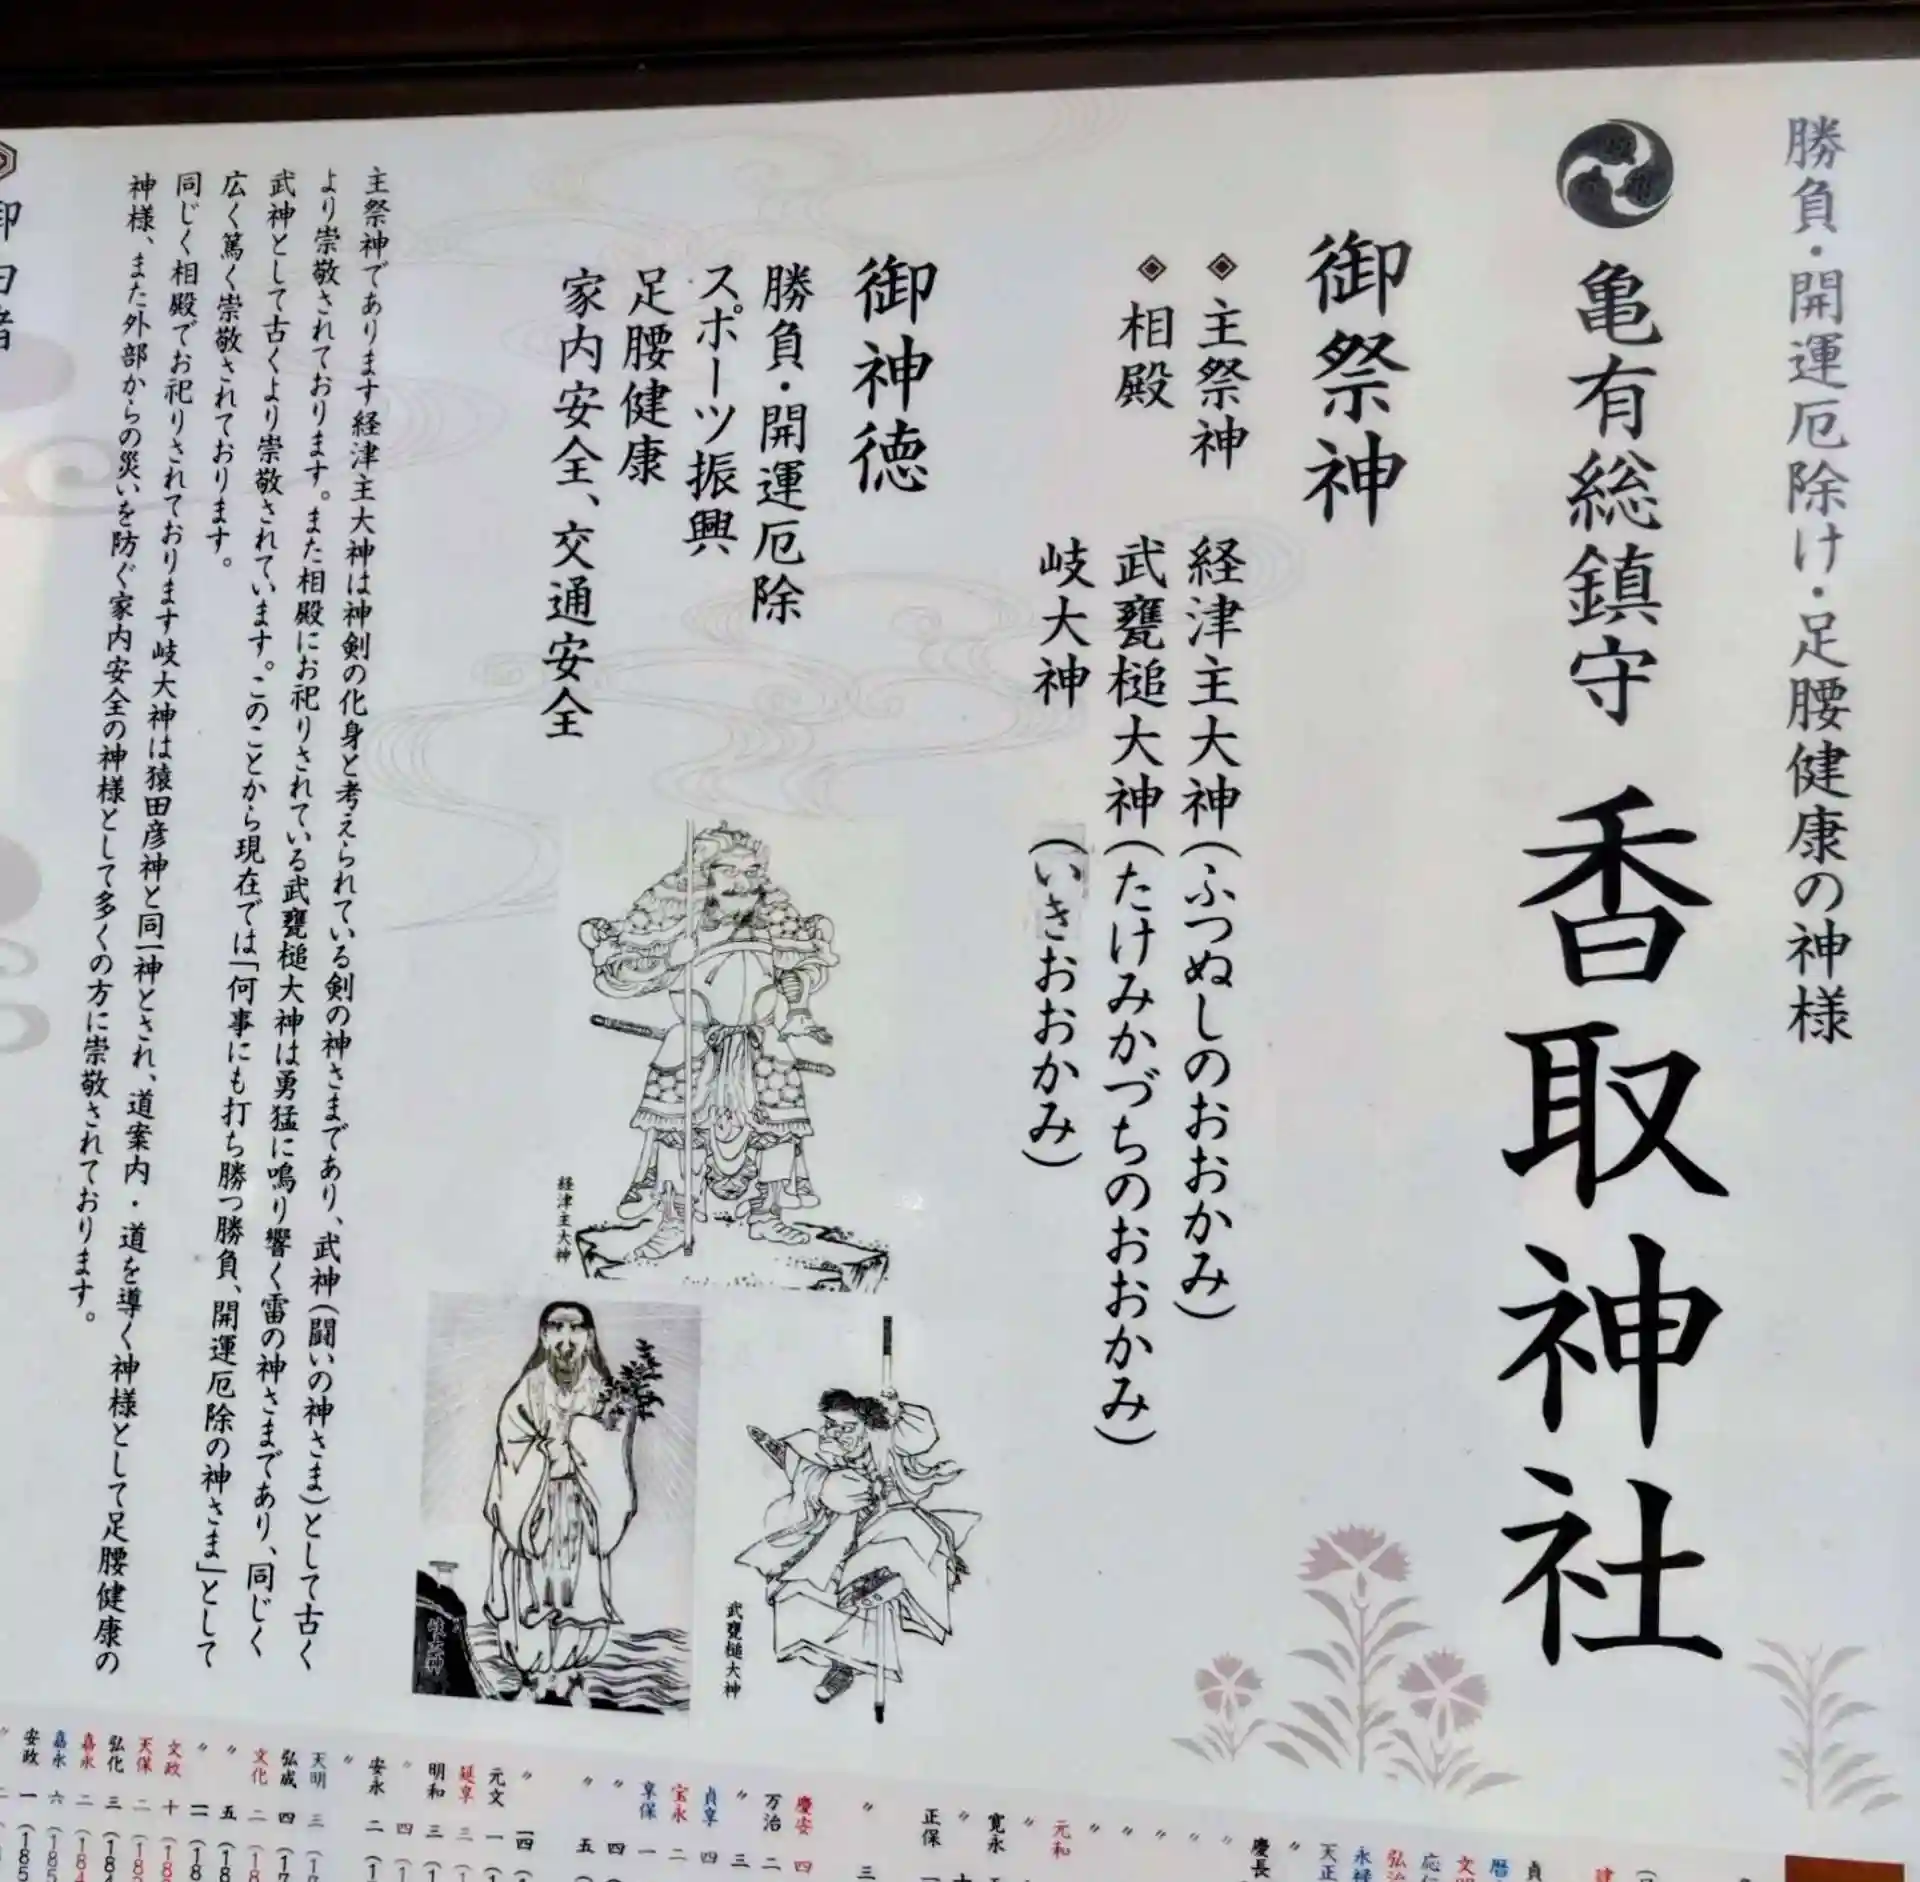 勝負・開運厄除け・足腰健康の神様
亀有総鎮守 香取神社
御祭神
主祭神 経津主大神(ふつぬしのおおかみ)
相殿 武甕槌大神(たけみかづちのおおかみ)
岐大神 (いきおおかみ)
御神徳
勝負・開運厄除
スポーツ振興
足腰健康
家内安全、交通安全
経津主大神
武甕槌大神
岐大神
主祭神であります経津主大神は神剣の化身と考えられている剣の神さまであり、武神(闘いの神さま)として古く
より崇敬されております。また相殿にお祀りされている武甕槌大神は勇猛に鳴り響く雷の神さまであり、同じく
武神として古くより崇敬されています。このことから現在では「何事にも打ち勝つ勝負、開運厄除の神さま」として
広く篤く崇敬されております。
同じく相殿でお祀りされております岐大神は猿田彦神と同一神とされ、道案内・道を導く神様として足腰健康の
神様、また外部からの災いを防ぐ家内安全の神様として多くの方に崇敬されております。
貞
暦
文
応
弘治
永禄
天正
慶長
元和
寛永
正保
慶安 四
万治 二
〃 三
貞享 四
宝永 二
享保 一
〃 四
〃 五
〃 一四
元文 一
延享 三
明和 三
〃 四
安永 二
天明 三
弘成 四
文化 二
〃 五
文政 十
天保 二
弘化 三
嘉永 二
嘉永 六
安政 一